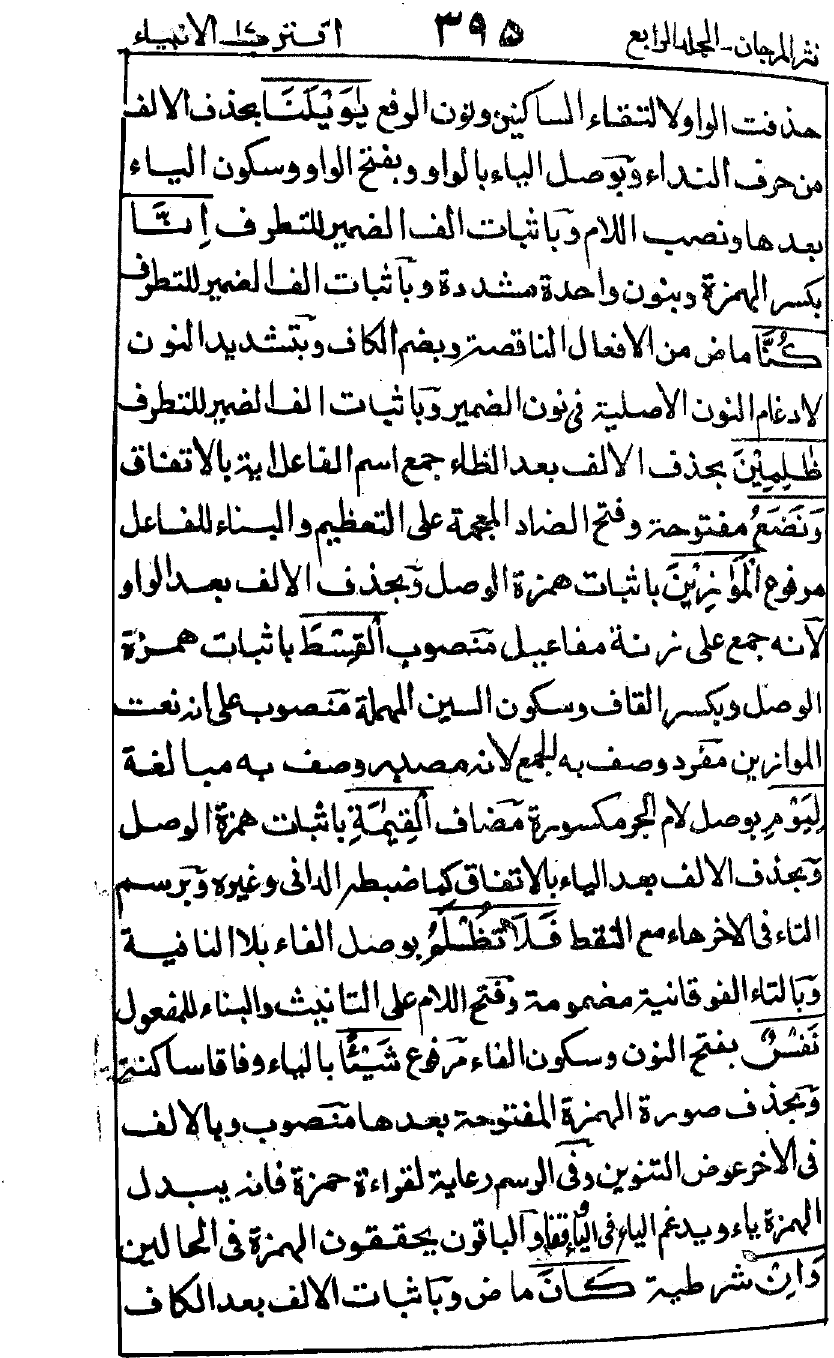 نثر المرجان - المجلد الرابع ٣٩٥ اقترب ١٧ الانبياء
حذفت الواو لالتقاء الساكنين ونون الرفع يٰوَيْلَنَا بحذف الالف
من حرف النداء وَبوصل الياء بالواو وبفتح الواو وسكون الياء
بعدها ونصب اللام وَباثبات الف الضمير للتطرف اِنَّا
بكسر الهمزة وبنون واحدة مشددة وبآثبات الف الضمير للتطرف
كُنَّا ماض من الافعال الناقصة وبضم الكاف وبتشديد النون
لادغام النون الاصلية في نون الضمير وَباثبات الف الضمير للتطرف
ظٰلِمِيْنَ بحذف الالف بعد الظاء جمع اسم الفاعل اية بالاتفاق
وَنَضَعُ مفتوحة وفتح الضاد المعجمة على التعظيم والبناء للفاعل
مرفوع الْمَوَازِيْنَ باثبات همزة الوصل وَبحذف الالف بعد الواو
لآنه جمع على زنة مفاعيل مَنصوب الْقِسْطَ باثبات همزة
الوصل وبكسر القاف وسكون السين المهملة مَنصوب على انه نعت
الموازين مَفرد وصف به الجمع لانه مصدر وصف به مبالغة
لِيَوْمِ بوصل لام الجر مكسورة مَضاف الْقِيٰمَةِ باثبات همزة الوصل
وَبحذف الالف بعد الياء بالاتفاق كما ضبطه الداني وغيره وَبرسم
التاء في الاخر هاء مع النقط فَلَا تُظْلَمُ بوصل الفاء بلا النافية
وَبالتاء الفوقانية مضمومة وفتح اللام على التانيث والبناء للمفعول
نَفْسٌ بفتح النون وسكون الفاء مَرفوع شَيْئًا بالياء وفاقا ساكنة
وَبحذف صورة الهمزة المفتوحة بعدها مَنصوب وبالالف
في الاخر عوض التنوين وَفي الرسم رعاية لقراءة حمزة فانه يبدل
الهمزة ياء ويدغم الياء في الياء وقفا وَالباقون يحققون الهمزة في الحالين
وَاِنْ شرطية كَانَ ماض وَباثبات الالف بعد الكاف